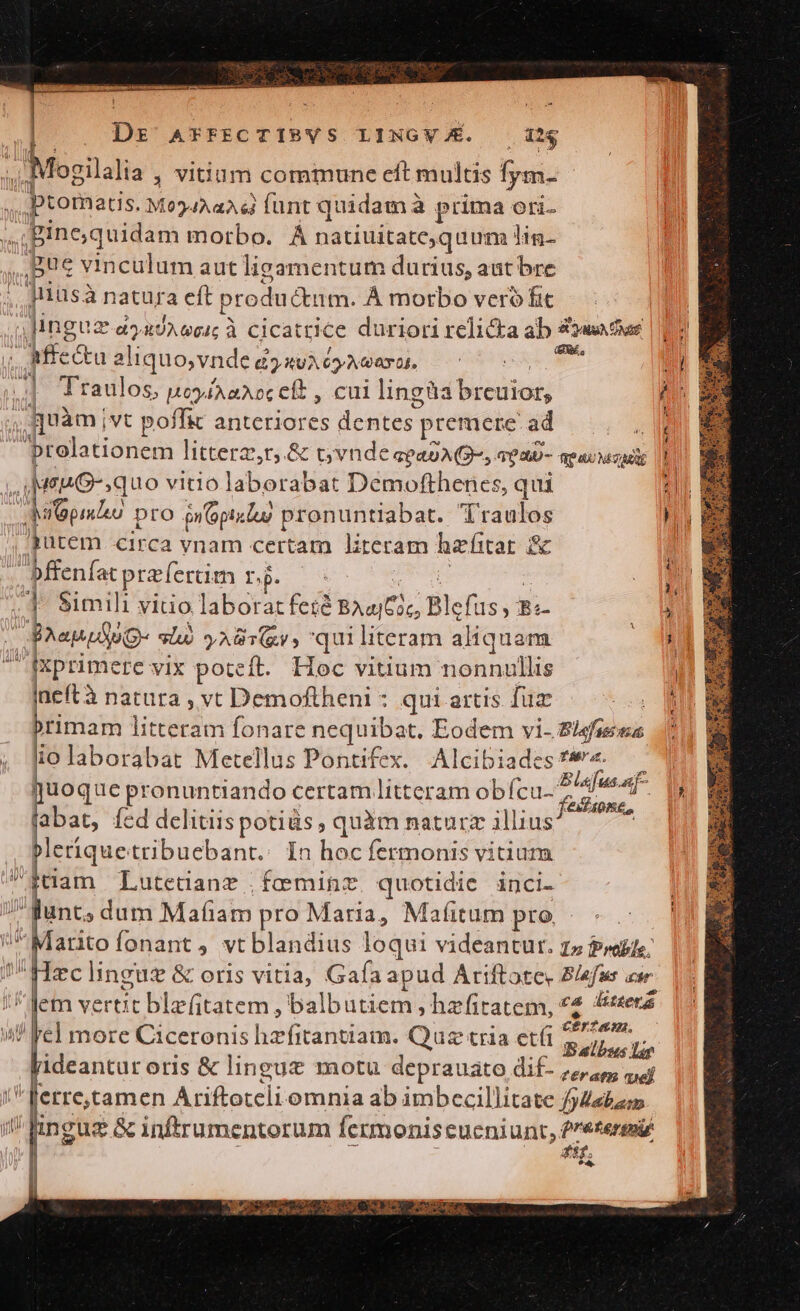 DE AFFECTIBVS LINGVÆ. 125
Mogilalia, vitium commune eſt multis ſym-
ptomatis. Μογιλαλοι ſunt quidam à prima ori-
gine, quidam morbo. A natiuitate, quum lin-
guæ vinculum aut ligamentum durius, aut bre
uius à natura eſt productum. A morbo verò fit
linguæ ἀγκύλωσις à cicatrice duriori relicta ab
affectu aliquo, vnde
Traulos, μογίλαλος eſt, cui lingua breuior,
quàm vt poſſit anteriores dentes premere ad
prolationem litteræ, r, & t, vnde
quo vitio laborabat Demoſthenes, qui
pro pronuntiabat. Traulos
autem circa vnam certam literam hæſitat &
offenſat præſertim r.ρ.
Simili vitio laborat ferè Blæſus,
qui literam aliquam
exprimere vix poteſt. Hoc vitium nonnullis
ineſt à natura, vt Demoſtheni : qui artis ſuæ
primam litteram ſonare nequibat. Eodem vi-
tio laborabat Metellus Pontifex. Alcibiades
quoque pronuntiando certam litteram obſcu-
rabat, ſed delitiis potiùs, quàm naturæ illius
pleríque tribuebant. In hoc ſermonis vitium
etiam Lutetianæ fœminæ quotidie inci-
dunt, dum Maſiam pro Maria, Maſitum pro
Marito ſonant, vt blandius loqui videantur.
Hæc linguæ & oris vitia, Gaſa apud Ariſtote,
lem vertit blæſitatem, balbutiem, hæſitatem,
vel more Ciceronis hæſitantiam. Quæ tria etſi
videantur oris & linguæ motu deprauato dif-
ferre, tamen Ariſtoteli omnia ab imbecillitate
linguæ & inſtrumentorum ſermonis eueniunt,
Blæſus
Blæſus af-
fectione,
In Proble.
Blæſus
litterā
certam.
Balbus
ceram vel
ſyllabam
prætermit
tit.